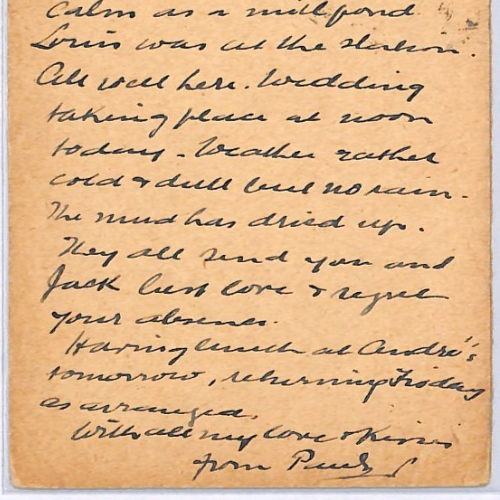 calm as a millpond.
Louis was at the station.
All well here. Wedding
taking place at noon
today - Weather rather
cold & dull but no rain.
The mud has dried up.
They all send you and
Jack best love & regret
your absence.
Having lunch at André's
tomorrow, returning Friday
as arranged.
With all my love & kisses
from